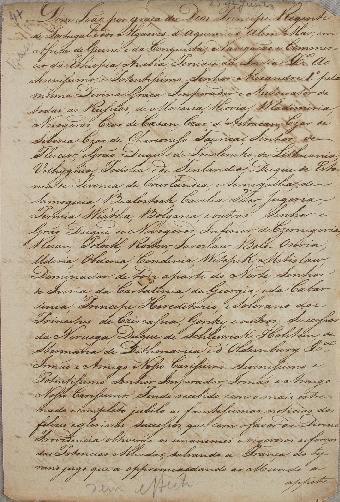 Dom João por graça de Deus Principe Regente
de Portugal e dos Algarves d'aquem e d'alem Mar, em
Africa de Guiné e da Conquista, e Navegação e Commercio
da Ethiopia, Arabia, Persia e da India &c. Ao
Serenissimo e Potentissimo Senhor Alexandre 1º pela
mesma Divina Graça Imperador e Autocrator de
todas as Russias de Moscovia, Kiovia, Wladimiria
Novogorod Czar de Casan Czar d'Astracan, Czar de
Siberia Czar de Chersoneso Taurica, Senhor de
Plescov, Grão Duque de Smolensko de Lithuania,
Volhynia, Podolia e de Finlandia, Duque de Esto
nia de Livonia de Curlandia e Semigallia, de
Samogicia, Bialostock, Carelia, Twer, Jugoria
Permia, Wiatka, Bolgaria e outros Senhor e
Grão Duque de Novogorod Inferior de Czernigovia,
Resan, Polock, Rostov, Jaroslaw, Belo
Udoria, Obdoria, Condinia, Witepsk, Mstislaw,
Dominador de toda a parte do Norte Senhor
de Iveria da Cartalinia da Georgia e da Cabar
dinia, Principe Hereditario e Soberano dos
Principes de Circassia, Gorsky e outros, Successor
da Noruega Duque de Schleswick Holstein de
Stormaria de Dithmarsia e d'Oldenburg &c.
Irmão e Amigo Nosso Carissimo. Serenissimo e
Potentissimo Senhor Imperador, Irmão e Amigo
Nosso Carissimo. Tendo recebido com o mais
completo jubilo as faustissimas noticias dos
felices e gloriosos successos, que com o favor da Divina
Providencia obtiverão os unanimes e vigorosos esforços
das Potencias Alliadas, salvando a França do ty
rano jugo que a opprimia e dando ao Mundo a
sem effeito